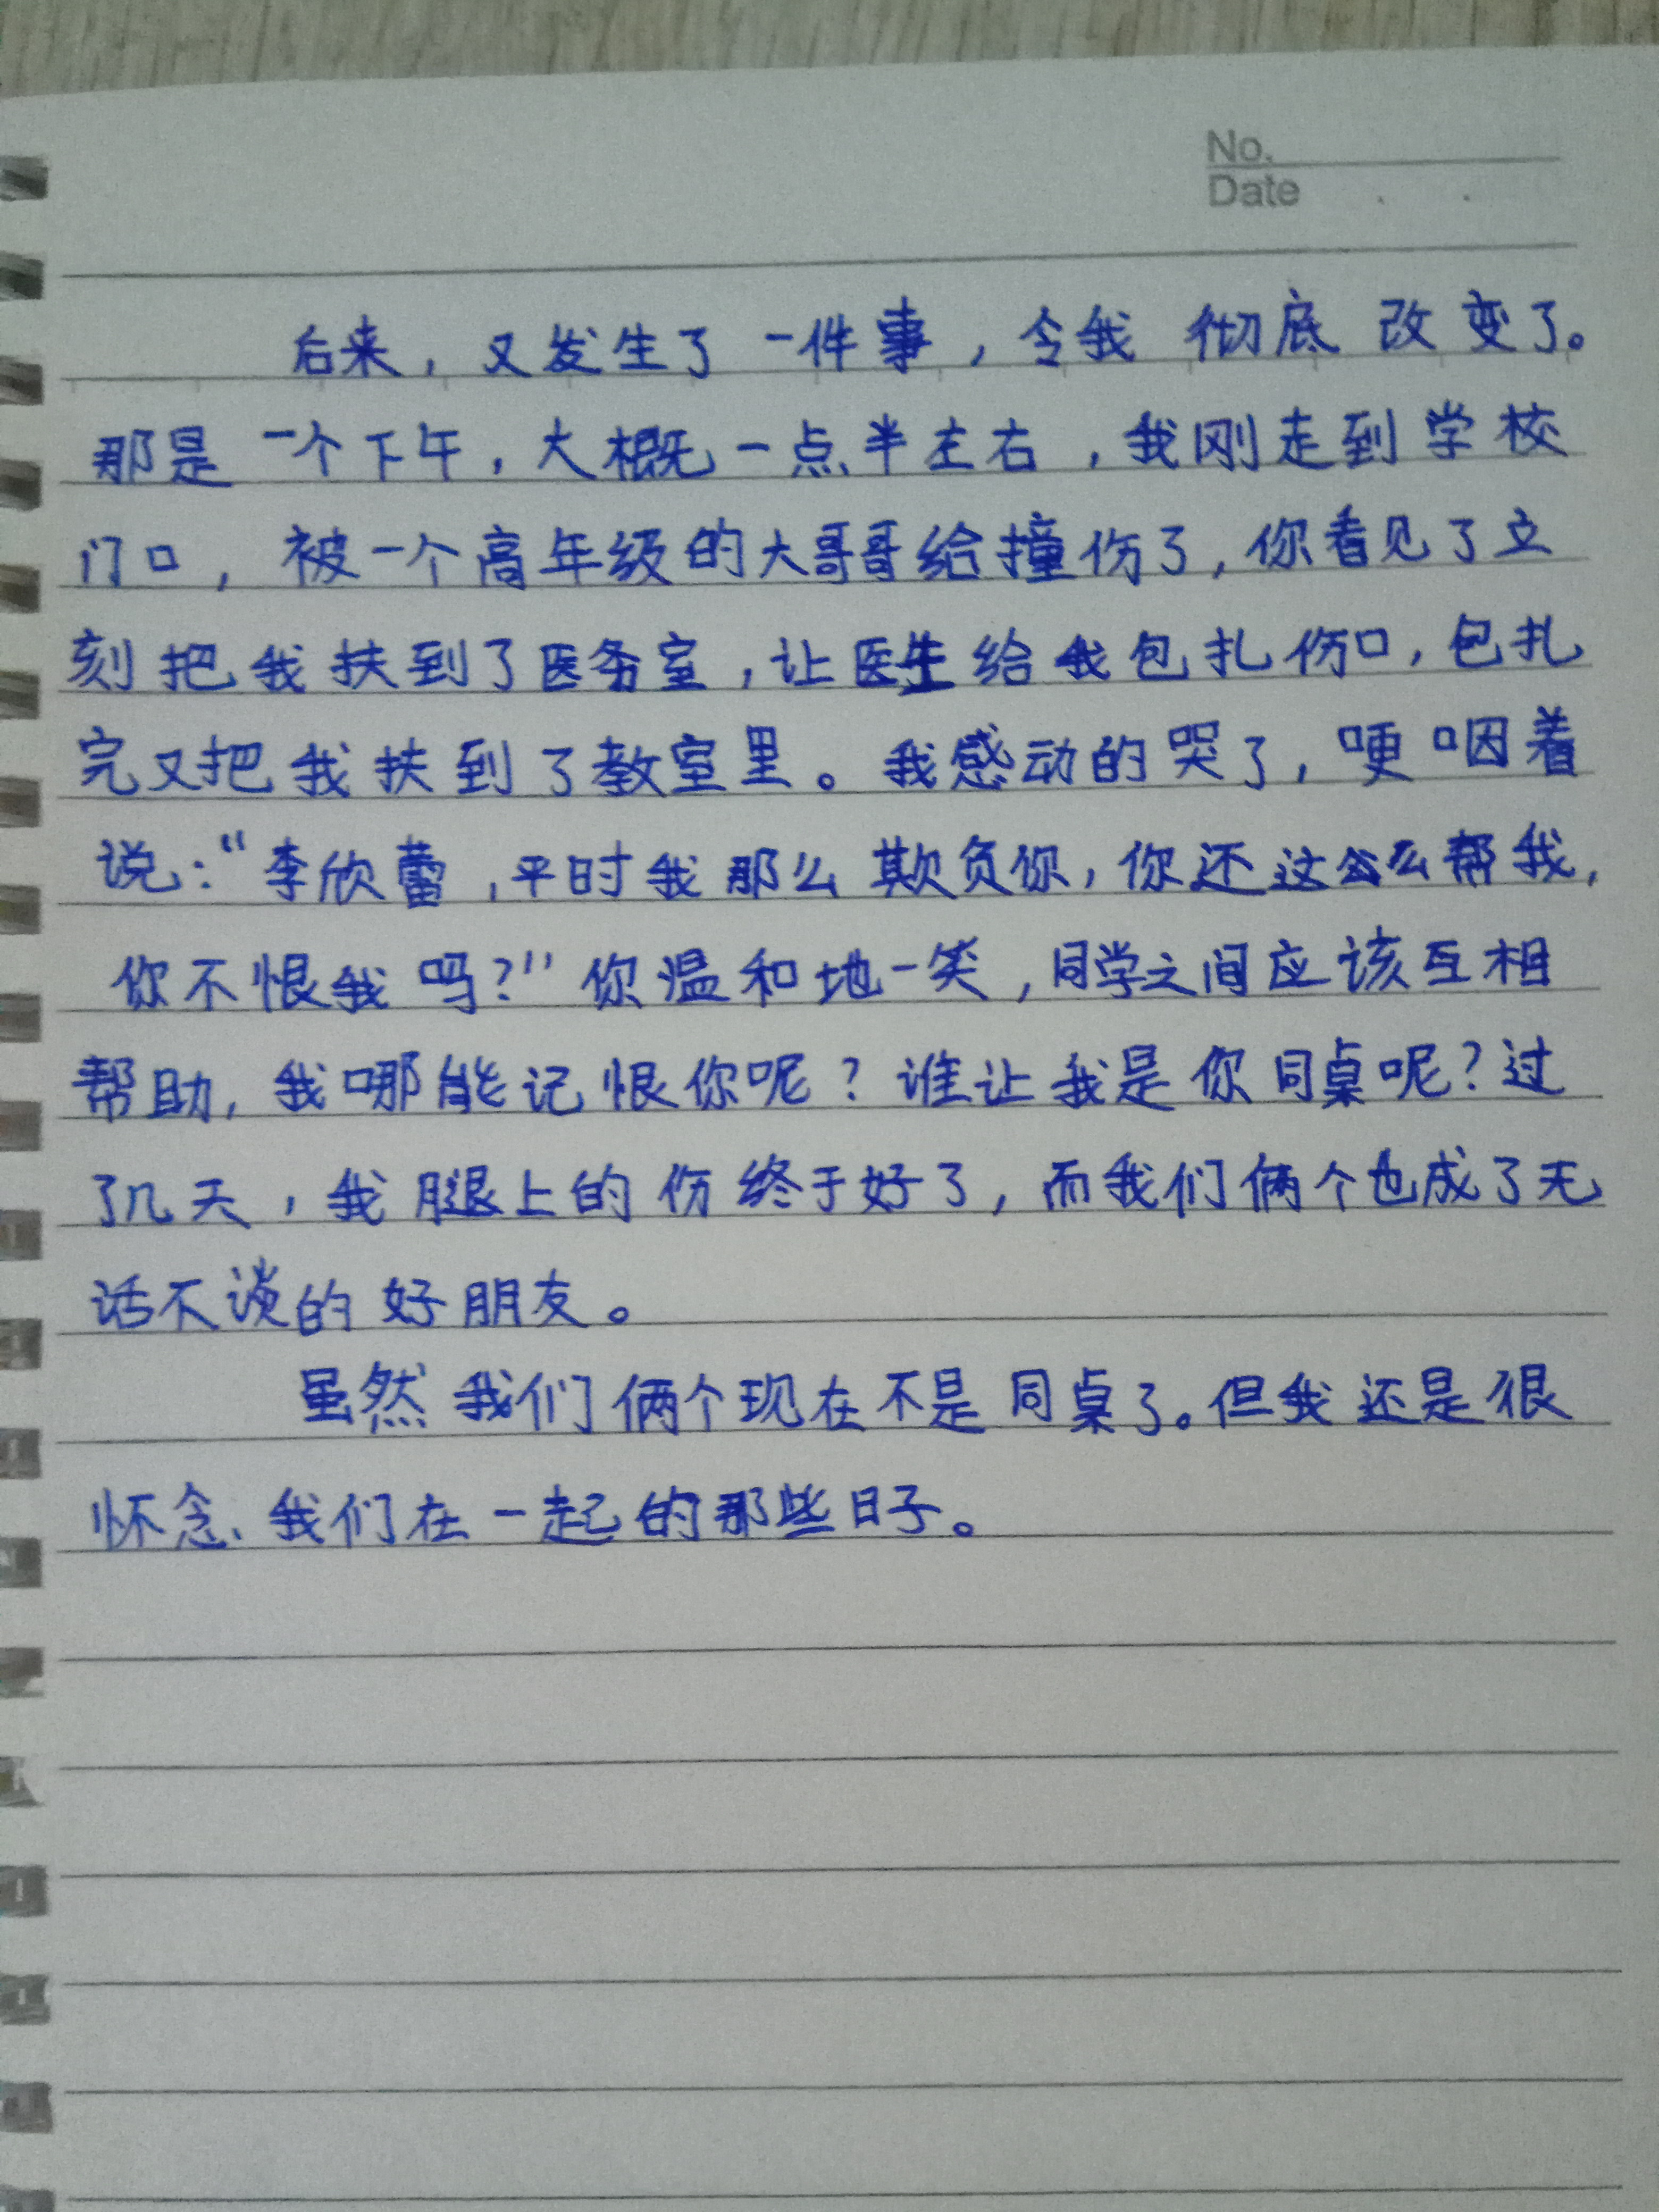 No.
Date . .
后来，又发生了一件事，令我彻底改变了。
那是一个下午，大概一点半左右，我刚走到学校
门口，被一个高年级的大哥哥给撞伤了，你看见了立
刻把我扶到了医务室，让医生给我包扎伤口，包扎
完又把我扶到了教室里。我感动的哭了，哽咽着
说：“李欣蕾，平时我那么欺负你，你还这么帮我，
你不恨我吗？”你温和地一笑，同学之间应该互相
帮助，我哪能记恨你呢？谁让我是你同桌呢？过
了几天，我腿上的伤终于好了，而我们俩个也成了无
话不谈的好朋友。
虽然我们俩个现在不是同桌了。但我还是很
怀念我们在一起的那些日子。